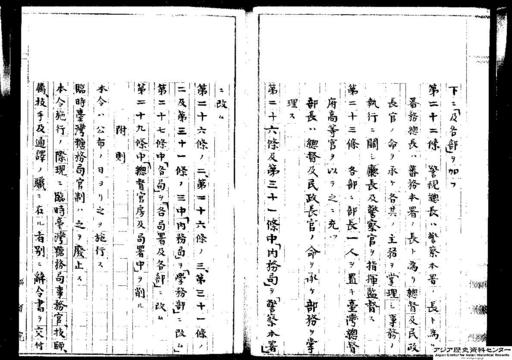 下ニ「及各部」ヲ加フ
第二十二條 警視總長ハ警察本署ノ長ト為リ
蕃務總長ハ蕃務本署ノ長ト為リ總督及民政
長官ノ命ヲ承ケ各其ノ主務ヲ掌理シ事務ノ
執行ニ關シ廳長及警察官ヲ指揮監督ス
第二十三條 各部ニ部長一人ヲ置キ臺灣總督
府高等官ヲ以テ之ニ充ツ
部長ハ總督及民政長官ノ命ヲ承ケ部務ヲ掌
理ス
第二十六條及第三十一條中「内務局」ヲ「警察本署」
ニ改ム
第二十六條ノ二、第二十六條ノ三、第三十一條ノ
二及第三十一條ノ三中「内務局」ヲ「學務部」ニ改ム
第二十七條中「各局」ヲ「各局署及各部」ニ改ム
第二十九條中「總督官房及局署中」ヲ削ル
附則
本令ハ公布ノ日ヨリ之ヲ施行ス
臨時臺灣糖務局官制ハ之ヲ廢止ス
本令施行ノ際現ニ臨時臺灣糖務局事務官、技師、
屬、技手及通譯ノ職ニ在ル者別ニ辭令書ヲ交付
アジア歴史資料センター
Japan Center for Asian Historical Records